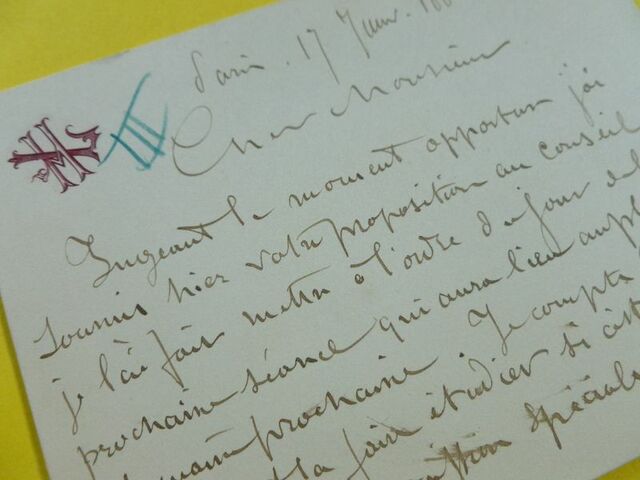 Paris. 17 Janv. 188
III
Cher Monsieur
Jugeant le moment opportun j'ai
soumis hier votre proposition au conseil
je l'ai fait mettre à l'ordre du jour de la
prochaine séance qui aura lieu au pl
prochaine. Je compte
la faire étudier si c'est
spéciale